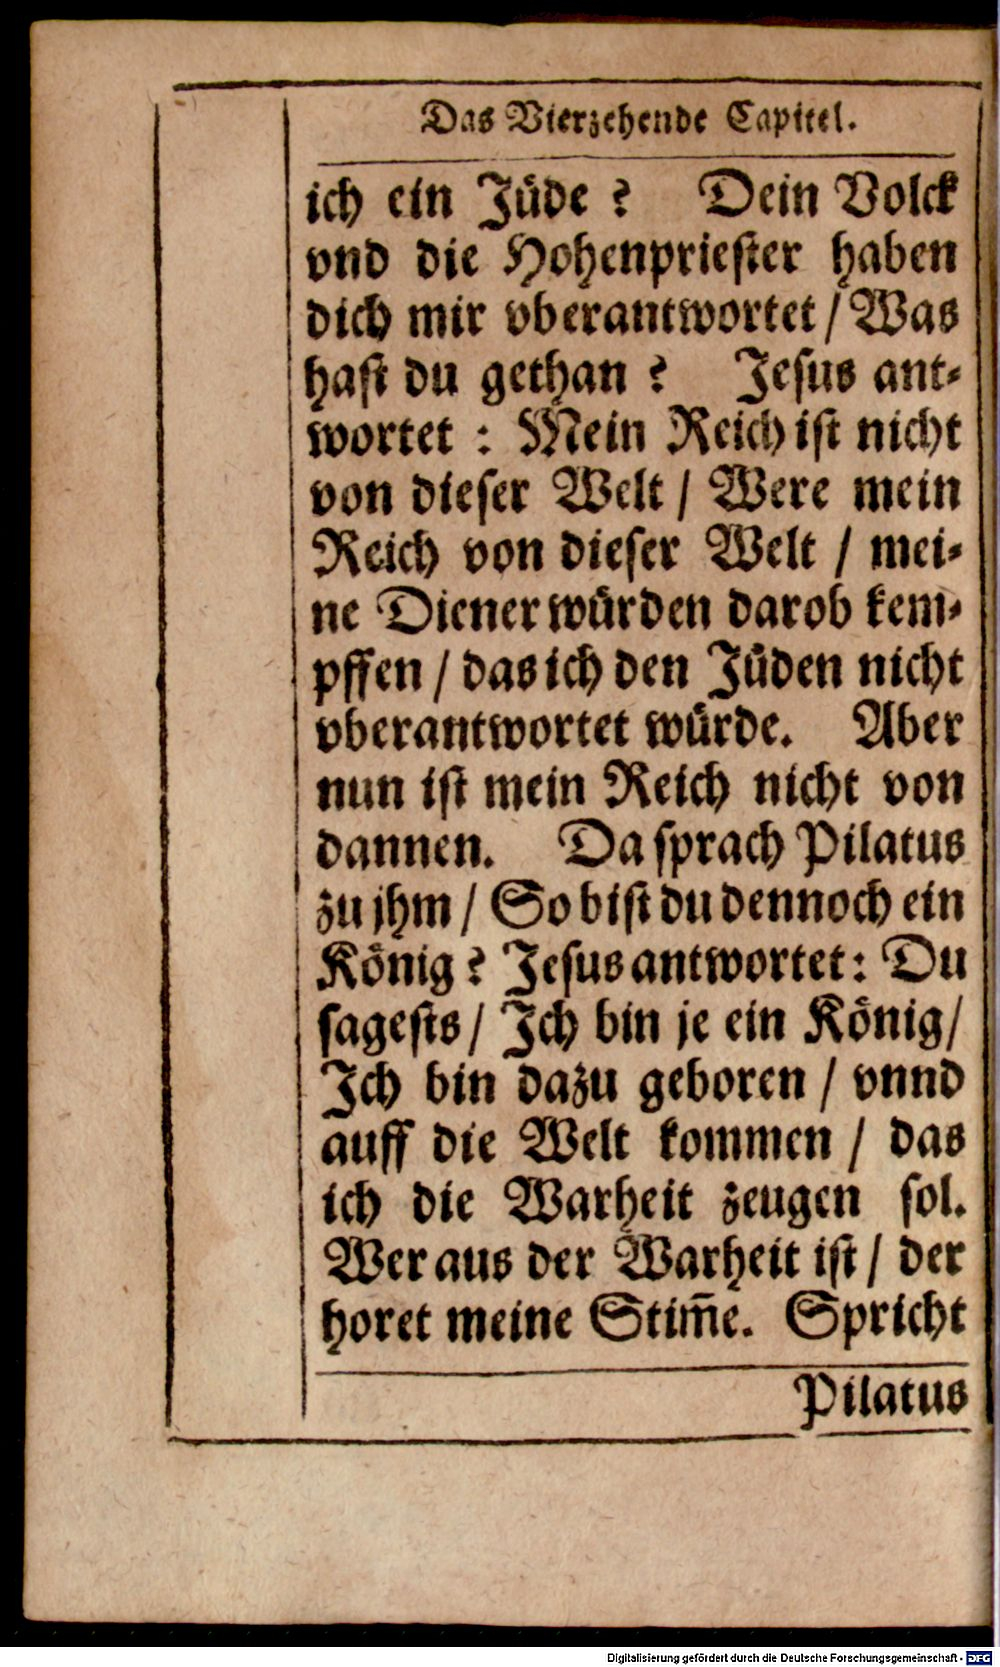 Das Vierzehende Capitel.
ich ein Jüde? Dein Volck
vnd die Hohenpriester haben
dich mir vberantwortet / Was
hast du gethan? Jesus ant-
wortet: Mein Reich ist nicht
von dieser Welt / Were mein
Reich von dieser Welt / mei-
ne Diener würden darob kem-
pffen / das ich den Jüden nicht
vberantwortet würde. Aber
nun ist mein Reich nicht von
dannen. Da sprach Pilatus
zu jhm / So bist du dennoch ein
König? Jesus antwortet: Du
sagests / Ich bin je ein König /
Ich bin dazu geboren / vnnd
auff die Welt kommen / das
ich die Warheit zeugen sol.
Wer aus der Warheit ist / der
horet meine Stim̃e. Spricht
Pilatus
Digitalisierung gefördert durch die Deutsche Forschungsgemeinschaft - DFG